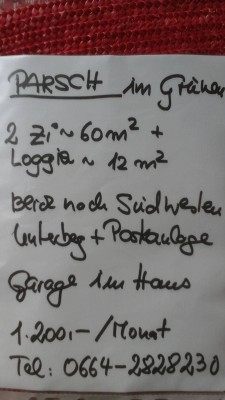 PARSCH im Grünen
2 Zi ~ 60 m² +
Loggia ~ 12 m²
beide nach Südwesten
Unterberg + Parkanlage
Garage im Haus
1.200,- /Monat
Tel: 0664-2828230